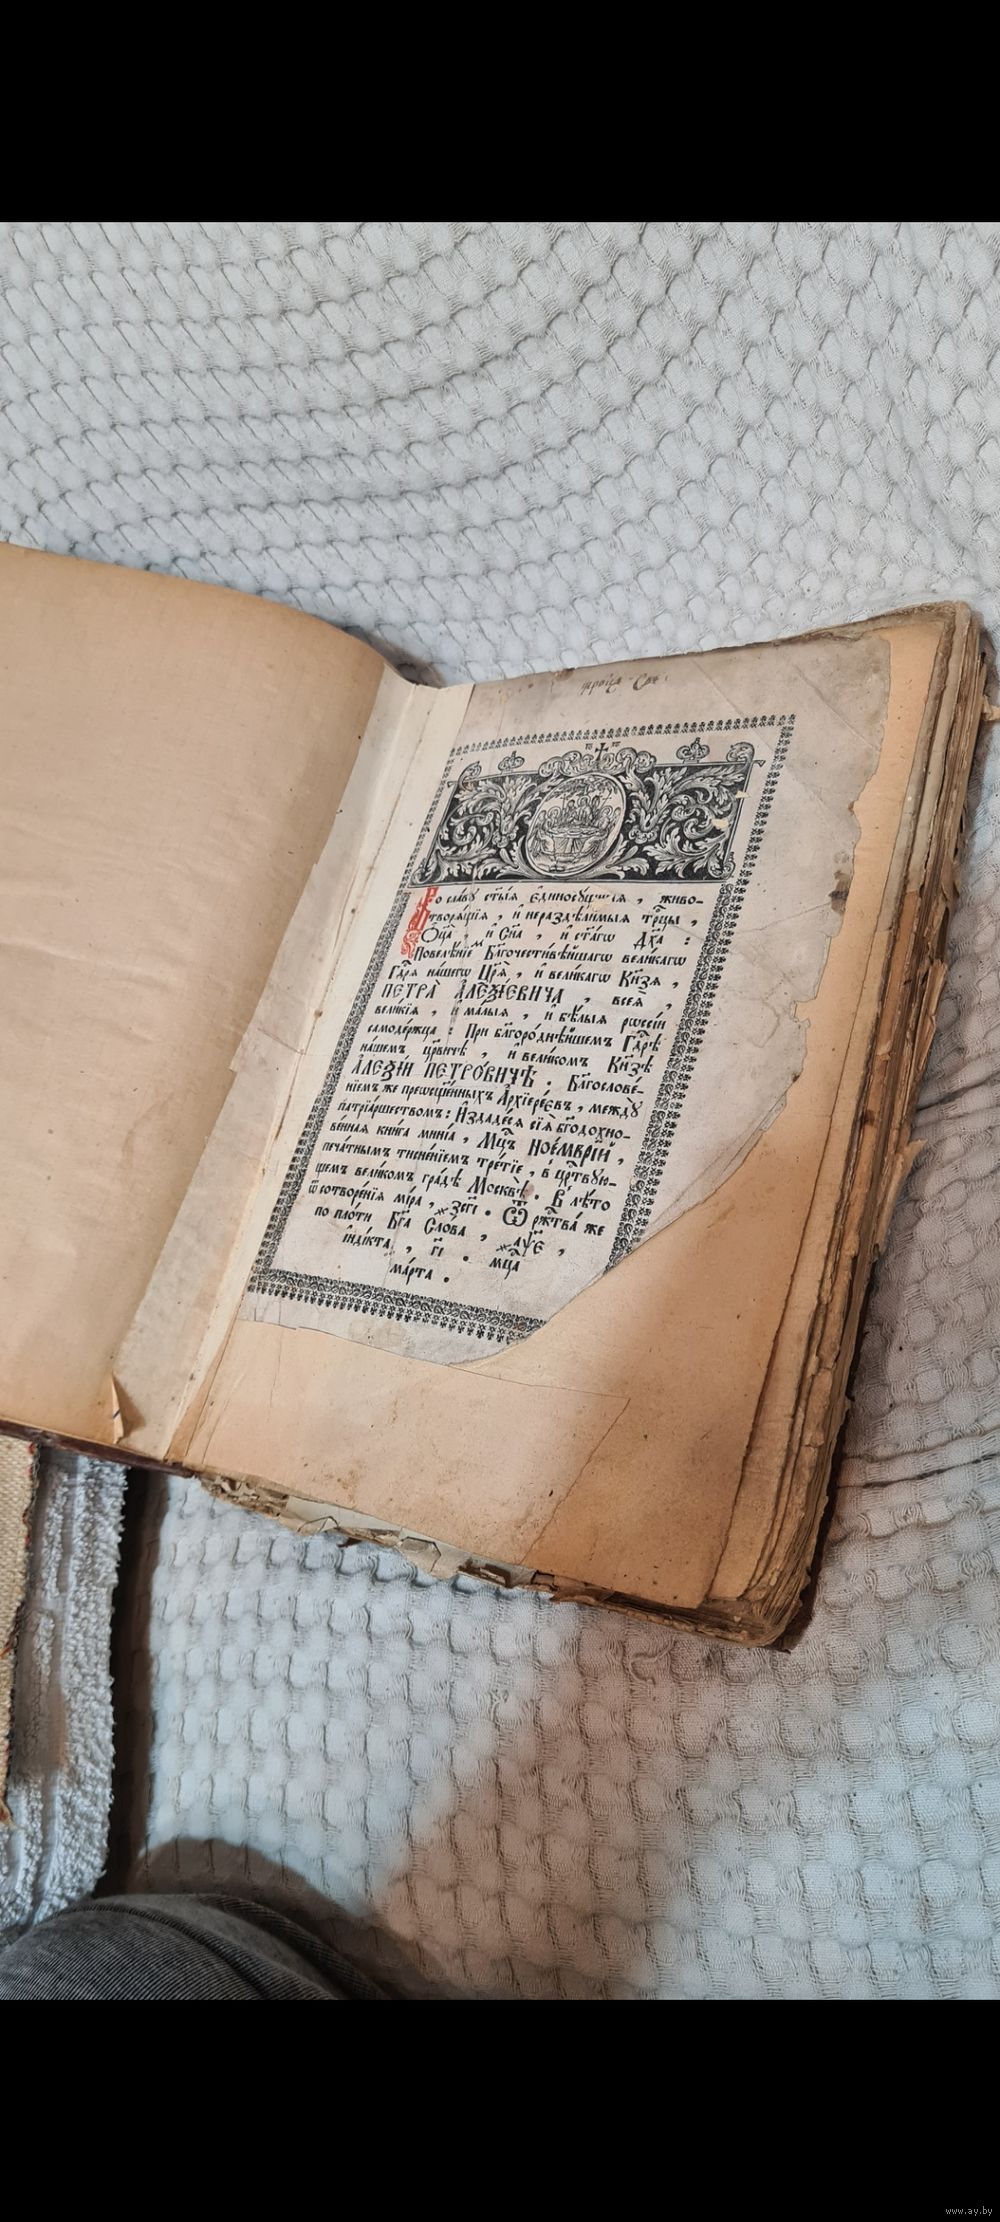 Во славу ст҃ы́ѧ є҆диносу́щныѧ , живо-
творѧ́щїѧ , и҆ нераздѣли́мыѧ трⷪ҇цы ,
Ѻ҆ц҃а̀ , и҆ Сн҃а , и҆ ст҃а́гѡ Дх҃а :
Повелѣ́нїемъ Бл҃гочести́вѣйшагѡ вели́кагѡ
Гдⷭ҇рѧ на́шегѡ Цр҃ѧ̀ , и҆ вели́кагѡ Кнѧ́зѧ ,
ПЕТРА̀ А҆ЛЕѮІ́ЕВИЧА , всеѧ̀ ,
вели́кїѧ , и҆ ма́лыѧ , и҆ бѣ́лыѧ рѡссі́и
самоде́ржца : При бл҃горо́днѣйшемъ Гдⷭ҇рѣ
на́шемъ цр҃е́вичѣ , и҆ вели́комъ Кнѧ́зѣ
А҆ЛЕѮІ́И ПЕТРО́ВИЧѢ . Бл҃гослове́-
нїемъ же преѡсщ҃е́нныхъ А҆рхїере́євъ , междꙋ̀
патрїа́ршествомъ : И҆здаде́сѧ сїѧ̀ бг҃одохно-
ве́ннаѧ кни́га мині́а , Мцⷭ҇ъ НОЕ́МВРІЙ ,
печа́тнымъ тисне́нїемъ тре́тїе , в̾ црⷭ҇твꙋю-
щемъ вели́комъ гра́дѣ Москвѣ̀ . В̾ лѣ́то
ѿ сотворе́нїѧ мі́ра , ҂зсгі . Ѿ ржⷭ҇тва̀ же
по пло́ти Бг҃а Сло́ва , ҂аѱе ,
і҆ндї́кта , гі . мцⷭ҇а
ма́рта .
www.ay.by